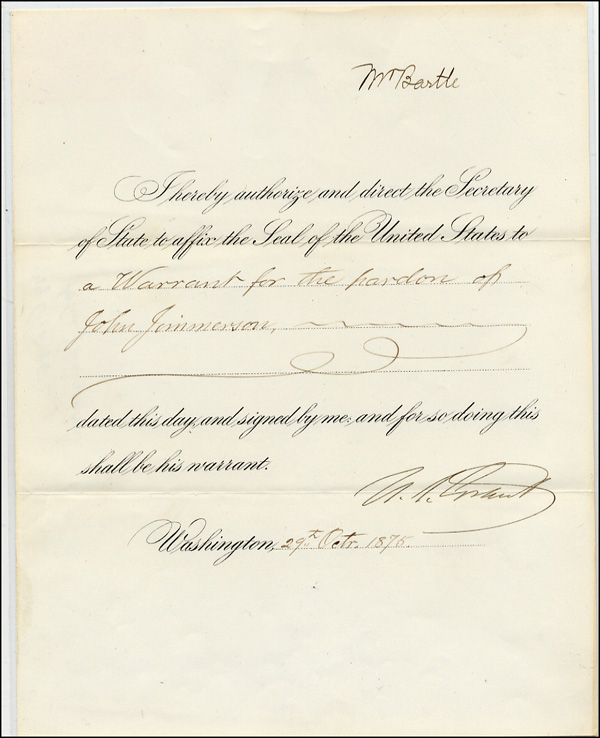 Mr Bartle
I hereby authorize and direct the Secretary
of State to affix the Seal of the United States to
a Warrant for the pardon of
John Jimmerson,
dated this day, and signed by me: and for so doing this
shall be his warrant.
U. S. Grant
Washington, 29th Octr. 1875.